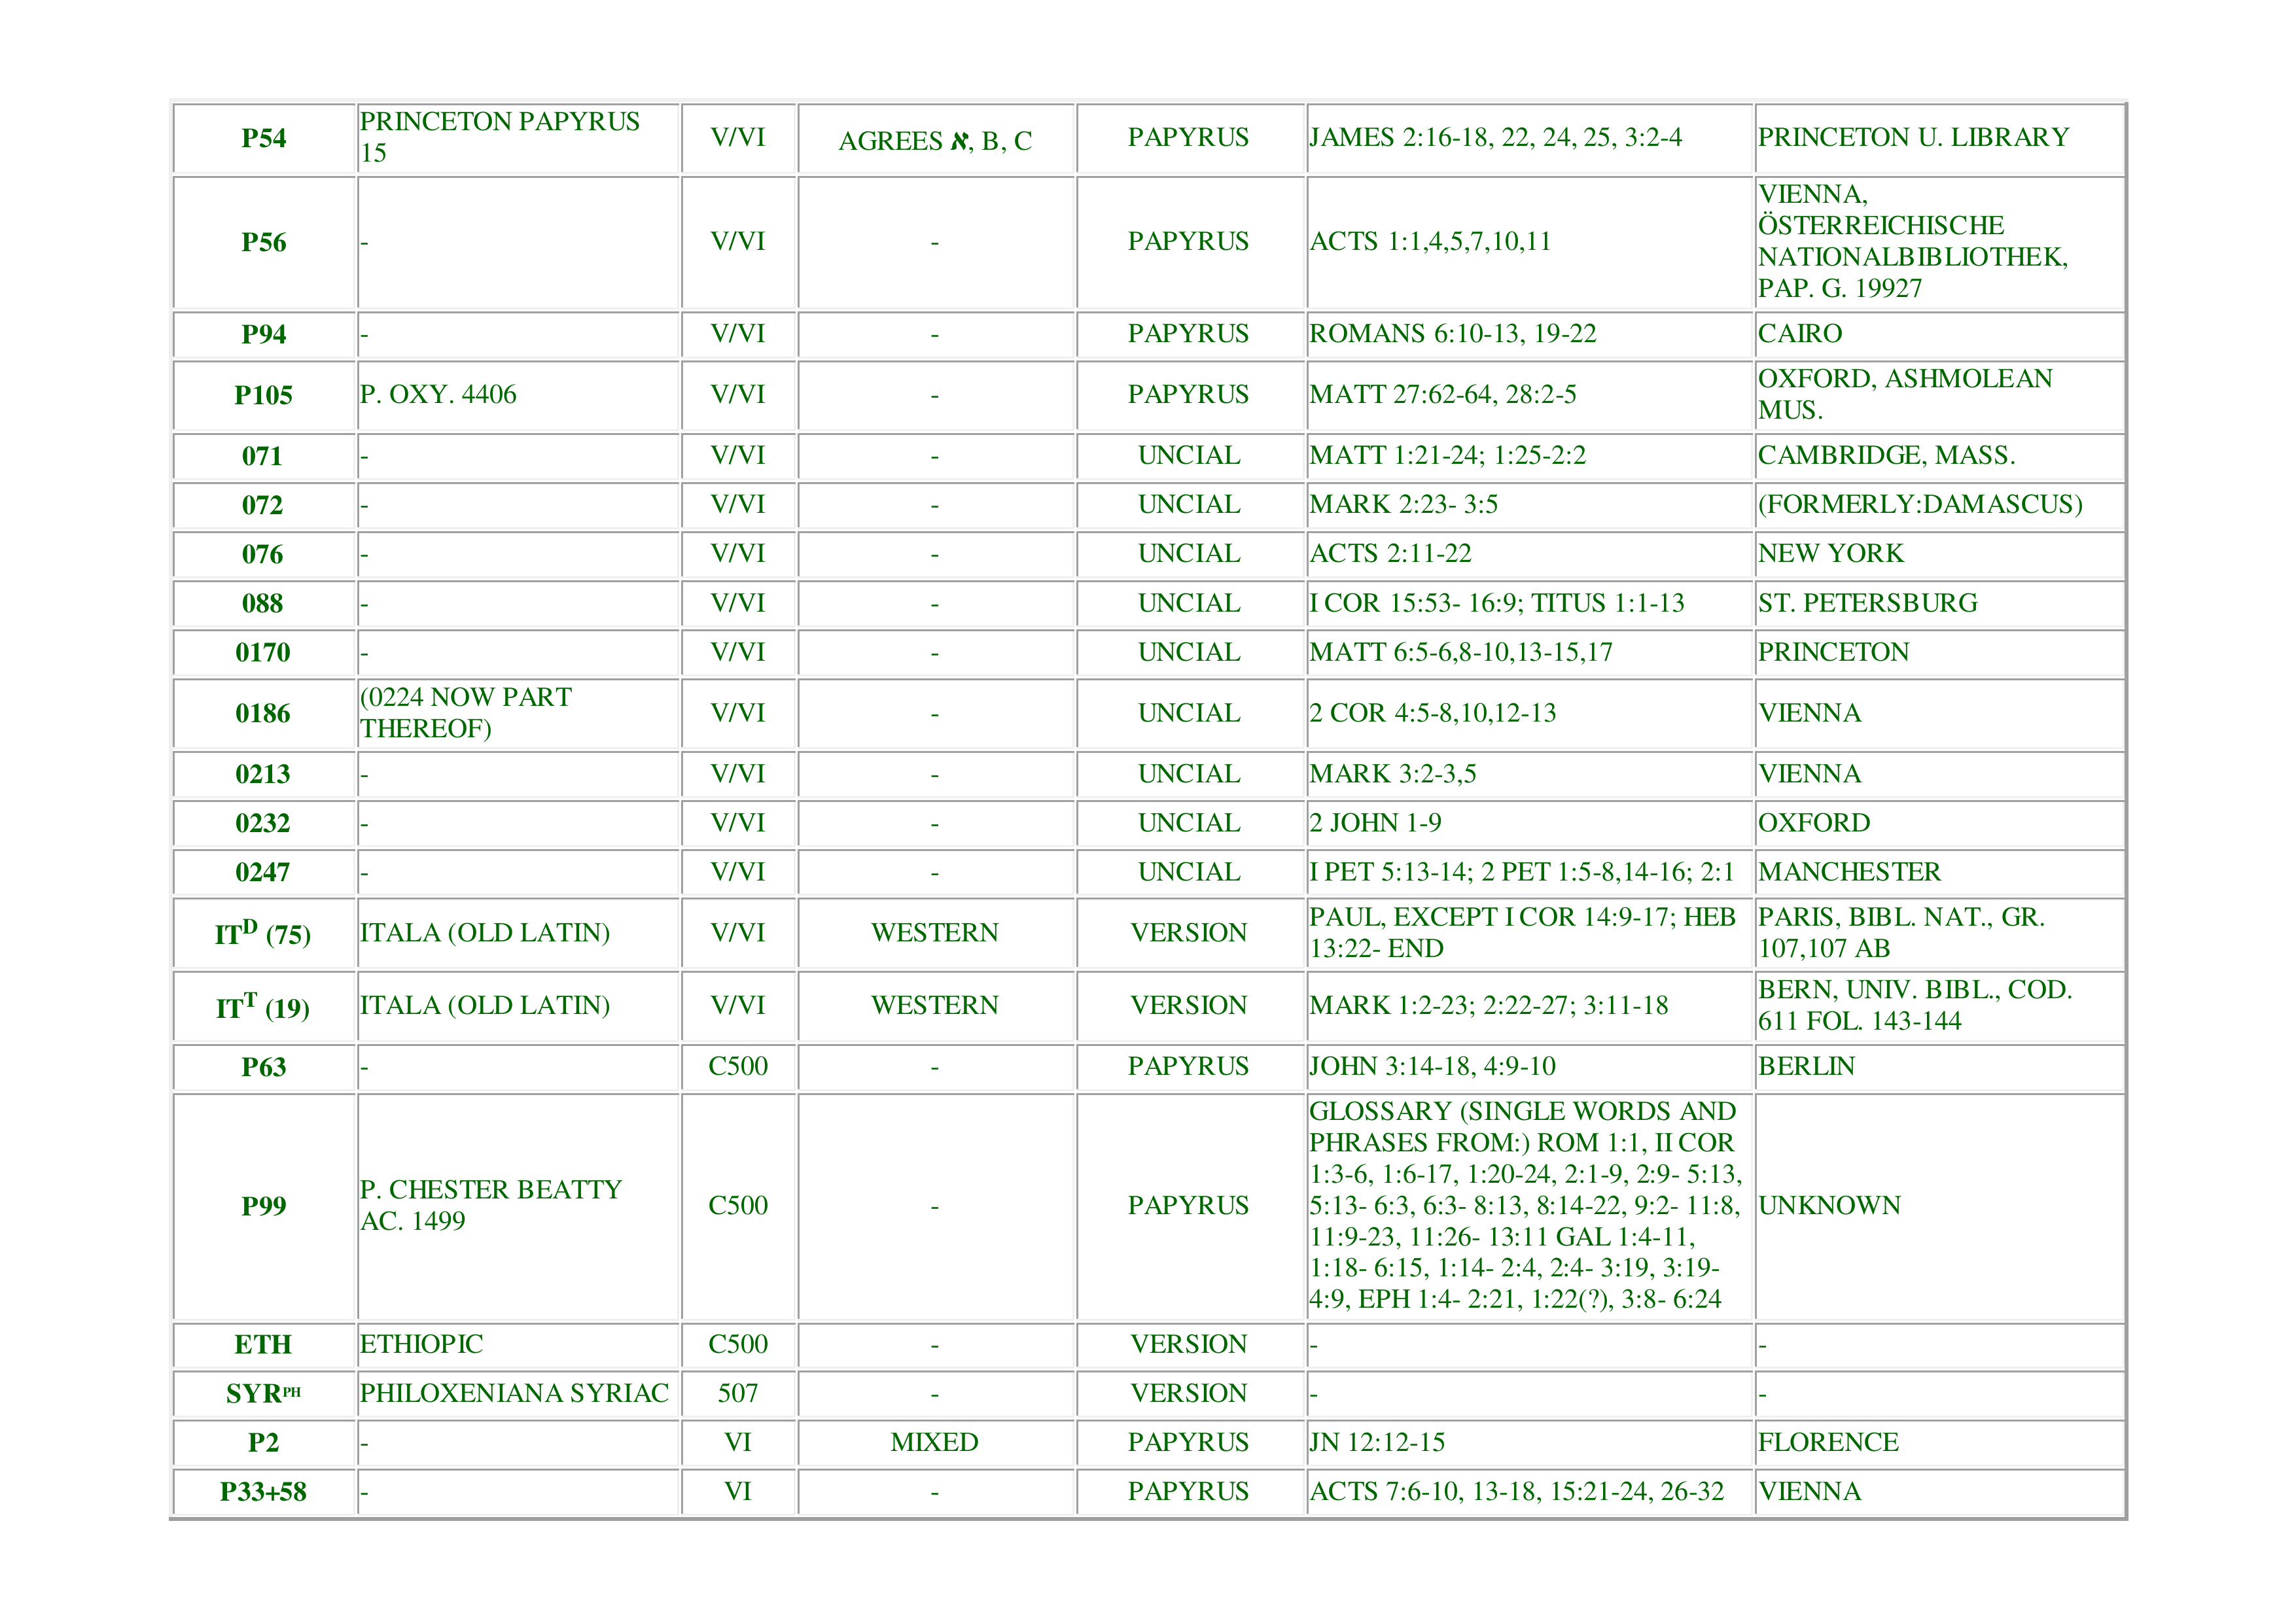 P54 PRINCETON PAPYRUS 15 V/VI AGREES א, B, C PAPYRUS JAMES 2:16-18, 22, 24, 25, 3:2-4 PRINCETON U. LIBRARY
P56 - V/VI - PAPYRUS ACTS 1:1,4,5,7,10,11 VIENNA, ÖSTERREICHISCHE NATIONALBIBLIOTHEK, PAP. G. 19927
P94 - V/VI - PAPYRUS ROMANS 6:10-13, 19-22 CAIRO
P105 P. OXY. 4406 V/VI - PAPYRUS MATT 27:62-64, 28:2-5 OXFORD, ASHMOLEAN MUS.
071 - V/VI - UNCIAL MATT 1:21-24; 1:25-2:2 CAMBRIDGE, MASS.
072 - V/VI - UNCIAL MARK 2:23- 3:5 (FORMERLY:DAMASCUS)
076 - V/VI - UNCIAL ACTS 2:11-22 NEW YORK
088 - V/VI - UNCIAL I COR 15:53- 16:9; TITUS 1:1-13 ST. PETERSBURG
0170 - V/VI - UNCIAL MATT 6:5-6,8-10,13-15,17 PRINCETON
0186 (0224 NOW PART THEREOF) V/VI - UNCIAL 2 COR 4:5-8,10,12-13 VIENNA
0213 - V/VI - UNCIAL MARK 3:2-3,5 VIENNA
0232 - V/VI - UNCIAL 2 JOHN 1-9 OXFORD
0247 - V/VI - UNCIAL I PET 5:13-14; 2 PET 1:5-8,14-16; 2:1 MANCHESTER
IT^D (75) ITALA (OLD LATIN) V/VI WESTERN VERSION PAUL, EXCEPT I COR 14:9-17; HEB 13:22- END PARIS, BIBL. NAT., GR. 107,107 AB
IT^T (19) ITALA (OLD LATIN) V/VI WESTERN VERSION MARK 1:2-23; 2:22-27; 3:11-18 BERN, UNIV. BIBL., COD. 611 FOL. 143-144
P63 - C500 - PAPYRUS JOHN 3:14-18, 4:9-10 BERLIN
P99 P. CHESTER BEATTY AC. 1499 C500 - PAPYRUS GLOSSARY (SINGLE WORDS AND PHRASES FROM:) ROM 1:1, II COR 1:3-6, 1:6-17, 1:20-24, 2:1-9, 2:9- 5:13, 5:13- 6:3, 6:3- 8:13, 8:14-22, 9:2- 11:8, 11:9-23, 11:26- 13:11 GAL 1:4-11, 1:18- 6:15, 1:14- 2:4, 2:4- 3:19, 3:19- 4:9, EPH 1:4- 2:21, 1:22(?), 3:8- 6:24 UNKNOWN
ETH ETHIOPIC C500 - VERSION - -
SYR^PH PHILOXENIANA SYRIAC 507 - VERSION - -
P2 - VI MIXED PAPYRUS JN 12:12-15 FLORENCE
P33+58 - VI - PAPYRUS ACTS 7:6-10, 13-18, 15:21-24, 26-32 VIENNA